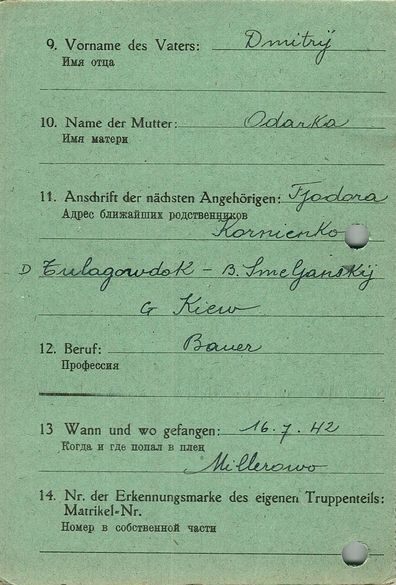 9. Vorname des Vaters: Dmitrij
Имя отца
10. Name der Mutter: Odarka
Имя матери
11. Anschrift der nächsten Angehörigen: Fjodora
Адрес ближайших родственников
Kornienko
D
B. Smeljanskij
G Kiew
12. Beruf: Bauer
Профессия
13 Wann und wo gefangen: 16.7.42
Когда и где попал в плен
Millerowo
14. Nr. der Erkennungsmarke des eigenen Truppenteils:
Matrikel-Nr.
Номер в собственной части